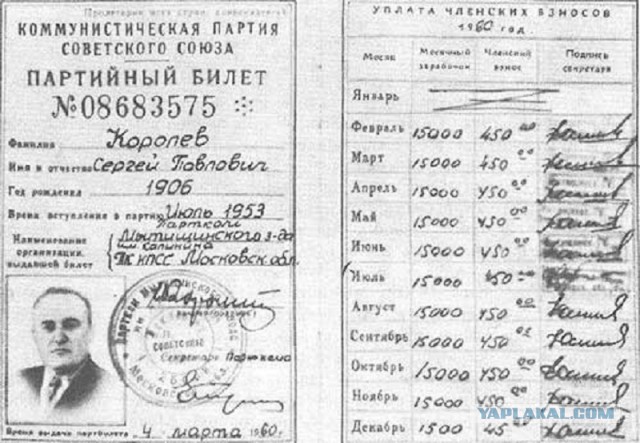 Пролетарии всех стран, соединяйтесь!
КОММУНИСТИЧЕСКАЯ ПАРТИЯ
СОВЕТСКОГО СОЮЗА
ПАРТИЙНЫЙ БИЛЕТ
№08683575
Фамилия Королев
Имя и отчество Сергей Павлович
Год рождения 1906
Время вступления в партию Июль 1953
Наименование организации, выдавшей билет
Парткомом
Мытищинского з-да
им. Калинина
КПСС Московск. обл.
Секретарь Парткома
Время выдачи партбилета 4 марта 1960 г.
УПЛАТА ЧЛЕНСКИХ ВЗНОСОВ
1960 год.
Месяц Месячный заработок Членский взнос Подпись секретаря
Январь
Февраль 15000 450 00
Март 15000 450 00
Апрель 15000 450 00
Май 15000 450 00
Июнь 15000 450 00
Июль 15000 450 00
Август 15000 450 00
Сентябрь 15000 450 00
Октябрь 15000 450 00
Ноябрь 15000 450 00
Декабрь 1500 45
YAPLAKAL.COM